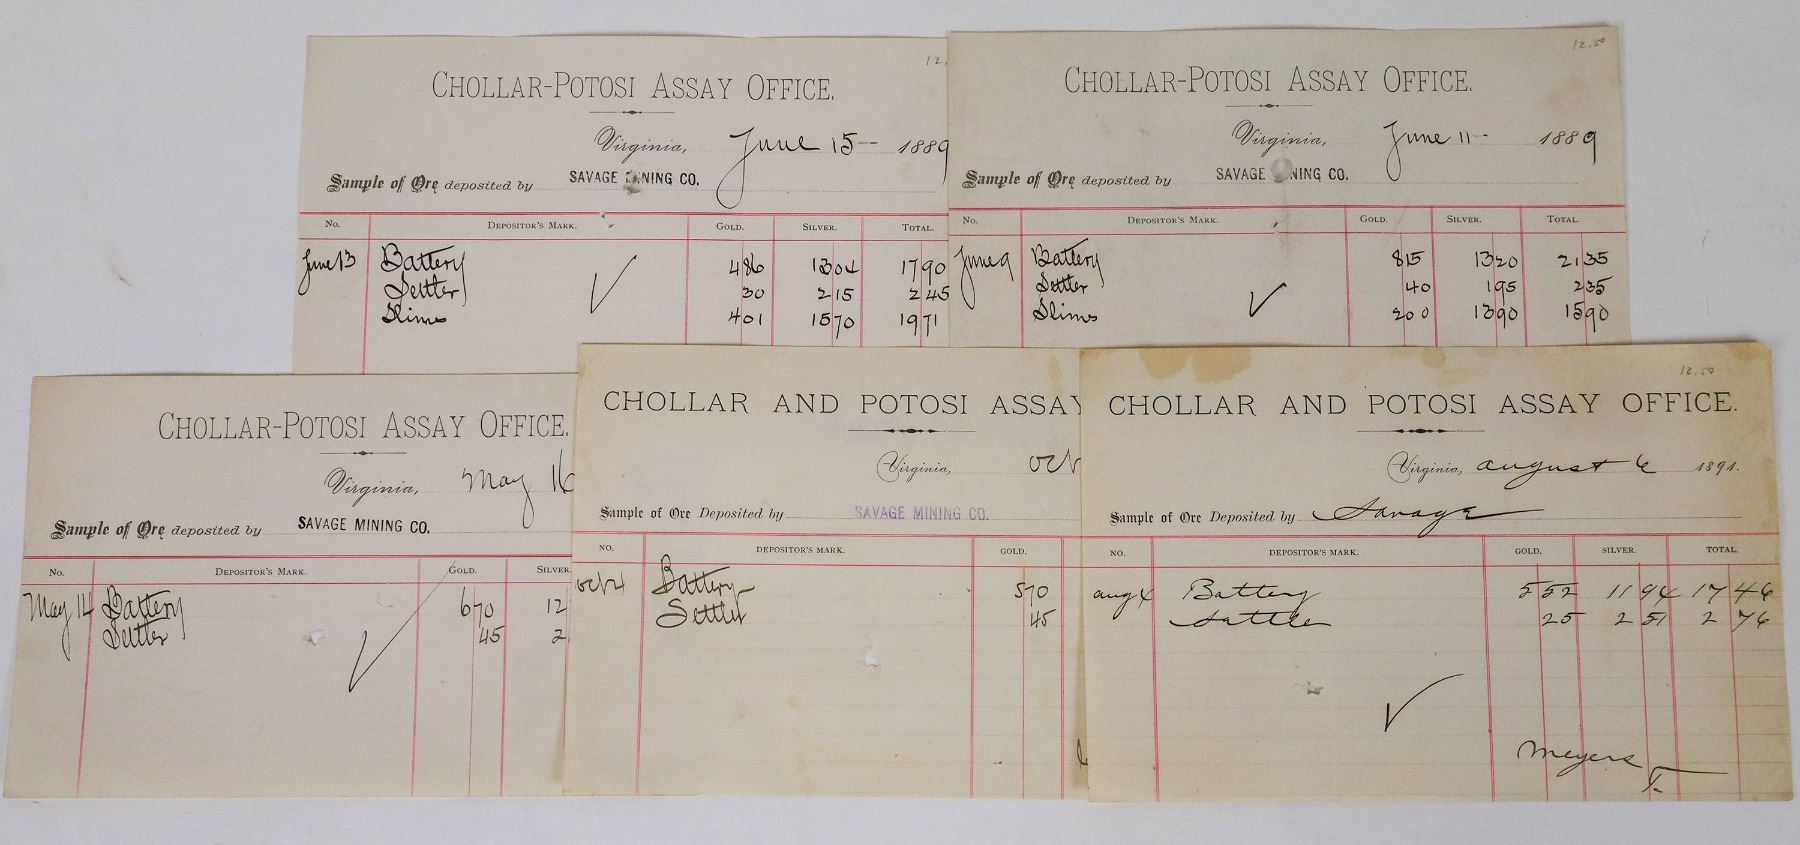 12.
CHOLLAR-POTOSI ASSAY OFFICE.
Virginia, June 15 1889
Sample of Ore deposited by SAVAGE MINING CO.
No. DEPOSITOR'S MARK. GOLD. SILVER. TOTAL.
June 13 Battery 4 86 13 04 17 90
Settler 30 2 15 2 45
Slimes 4 01 15 70 19 71
12.50
CHOLLAR-POTOSI ASSAY OFFICE.
Virginia, June 11 1889
Sample of Ore deposited by SAVAGE MINING CO.
No. DEPOSITOR'S MARK. GOLD. SILVER. TOTAL.
June 9 Battery 8 15 13 20 21 35
Settler 40 1 95 2 35
Slimes 2 00 13 90 15 90
CHOLLAR-POTOSI ASSAY OFFICE.
Virginia, May 16
Sample of Ore deposited by SAVAGE MINING CO.
No. DEPOSITOR'S MARK. GOLD. SILVER.
May 14 Battery 6 70 12
Settler 45 2
CHOLLAR AND POTOSI ASSAY
Virginia, Oct
Sample of Ore Deposited by SAVAGE MINING CO.
NO. DEPOSITOR'S MARK. GOLD.
Oct 4 Battery 5 70
Settler 45
12.50
CHOLLAR AND POTOSI ASSAY OFFICE.
Virginia, August 6 1891.
Sample of Ore Deposited by Savage
NO. DEPOSITOR'S MARK. GOLD. SILVER. TOTAL.
Aug 4 Battery 5 52 11 94 17 46
Settler 25 2 51 2 76
Meyers